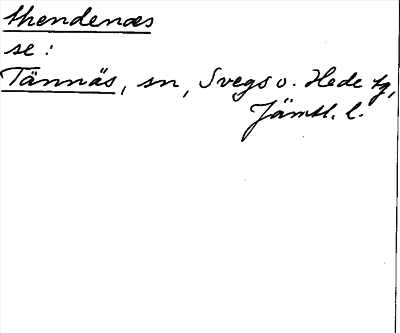 thendenæs
se:
Tännäs, sn, Svegs o. Hede tg,
Jämtl. l.